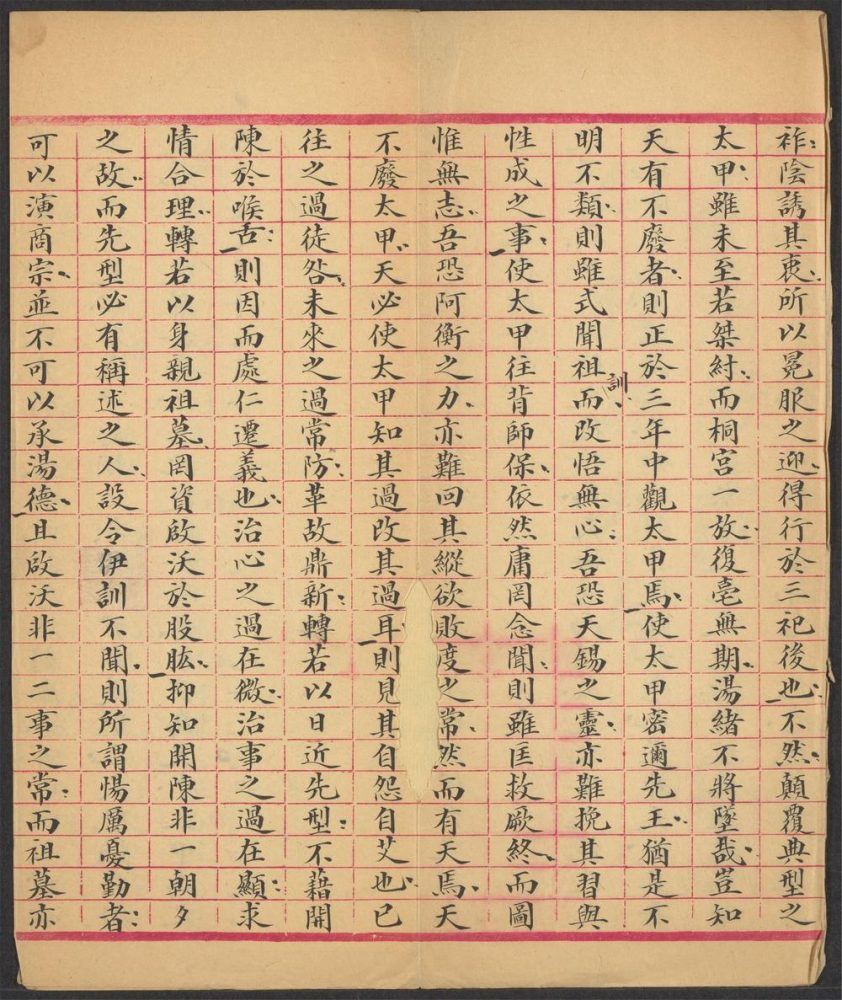 祚陰誘其衷所以冕服之迎得行於三祀後也不然顛覆典型之
太甲雖未至若桀紂而桐宮一放復亳無期湯緒不將墜哉豈知
天有不廢者則正於三年中觀太甲焉使太甲密邇先王猶是不
明不類則雖式聞祖訓而改悟無心吾恐天錫之靈亦難挽其習與
性成之事使太甲往背師保依然庸罔念聞則雖匡救厥終而圖
惟無志吾恐阿衡之力亦難回其縱欲敗度之常然而有天焉天
不廢太甲天必使太甲知其過改其過耳則見其自怨自艾也已
往之過徒咎未來之過常防革故鼎新轉若以日近先型不藉開
陳於喉舌則因而處仁遷義也治心之過在微治事之過在顯求
情合理轉若以身親祖墓罔資啟沃於股肱抑知開陳非一朝夕
之故而先型必有稱述之人設令伊訓不聞則所謂惕厲憂勤者
可以演商宗並不可以承湯德且啟沃非一二事之常而祖墓亦